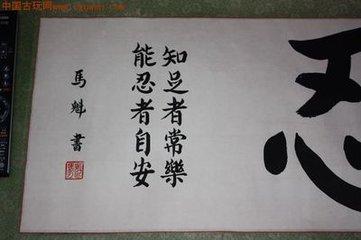 中国古玩网
忍
知足者常樂
能忍者自安
馬魁書